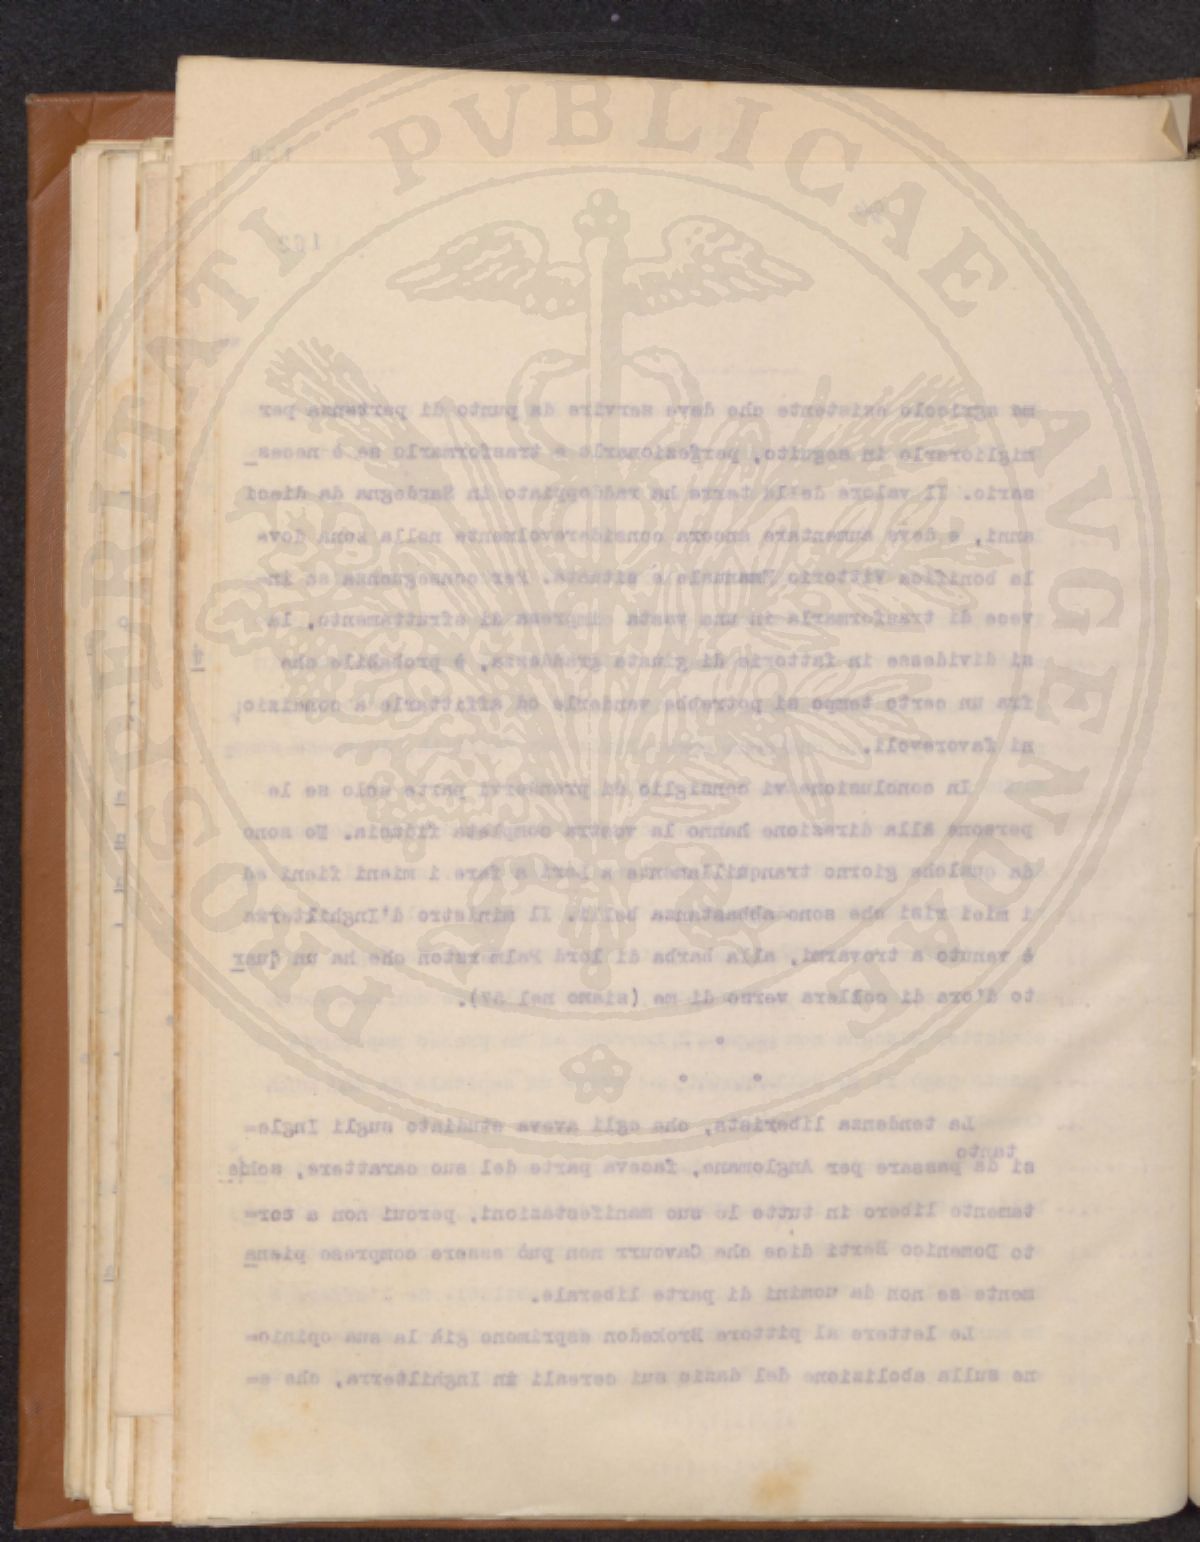 PROSPERITATI PVBLICAE AVGENDAE
162
me agricolo esistente che deve servire da punto di partenza per
migliorarlo in seguito, perfezionarlo e trasformarlo se è neces_
sario. Il valore delle terre ha raddoppiato in Sardegna da dieci
anni, e deve aumentare ancora considerevolmente nella zona dove
la bonifica Vittorio Emanuele è situata. Per conseguenza se in-
vece di trasformarla in una vasta impresa di sfruttamento, la
si dividesse in fattorie di giusta grandezza, è probabile che
fra un certo tempo si potrebbe venderle od affittarle a condizio
ni favorevoli.
In conclusione vi consiglio di prendervi parte solo se le
persone alla direzione hanno la vostra completa fiducia. Io sono
da qualche giorno tranquillamente a Leri a fare i miei fieni ed
i miei risi che sono abbastanza belli. Il ministro d'Inghilterra
è venuto a trovarmi, alla barba di lord Palmerston che ha un quar
to d'ora di collera verso di me (siamo nel 57).
La tendenza liberista, che egli aveva studiato sugli Ingle-
tanto
si da passare per Anglomane, faceva parte del suo carattere, schie
tamente libero in tutte le sue manifestazioni, percui non a tor-
to Domenico Berti dice che Cavourr non può essere compreso piena
mente se non da uomini di parte liberale.
Le lettere al pittore Brokedon esprimono già la sua opinio-
ne sulla abolizione del dazio sui cereali in Inghilterra, che e-